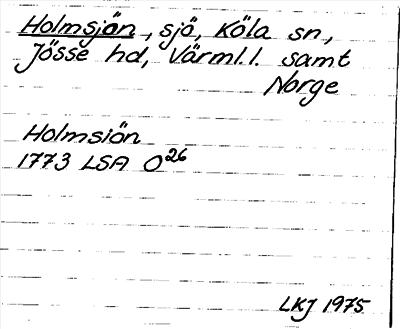 Holmsjön, sjö, Köla sn,
Jösse hd, Värml. l. samt
Norge
Holmsiön
1773 LSA O26
LKJ 1975